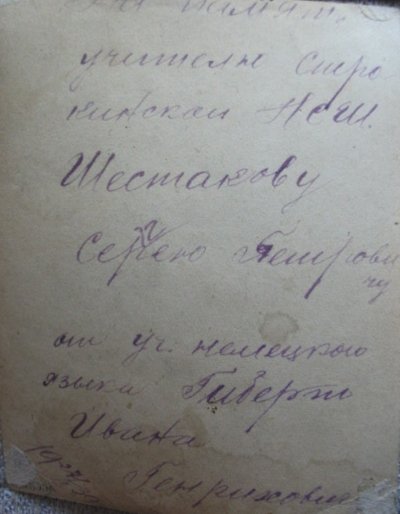 На память
учителю Стро
кинской НСШ.
Шестакову
Сергею Петрови
чу
от уч. немецкого
языка Гиберт
Ивана
Генриховича